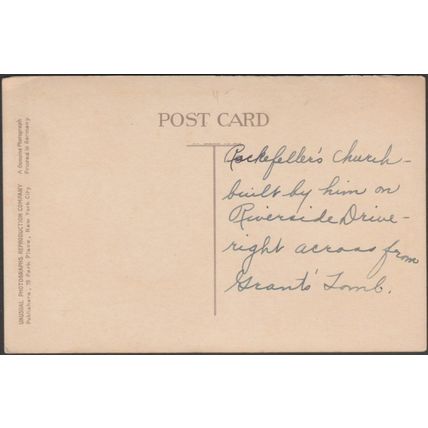 POST CARD
Rockefeller's Church -
built by him on
Riverside Drive -
right across from
Grant's Tomb.
UNUSUAL PHOTOGRAPHS REPRODUCTION COMPANY
Publishers, 15 Park Place, New York City
A Genuine Photograph
Printed in Germany